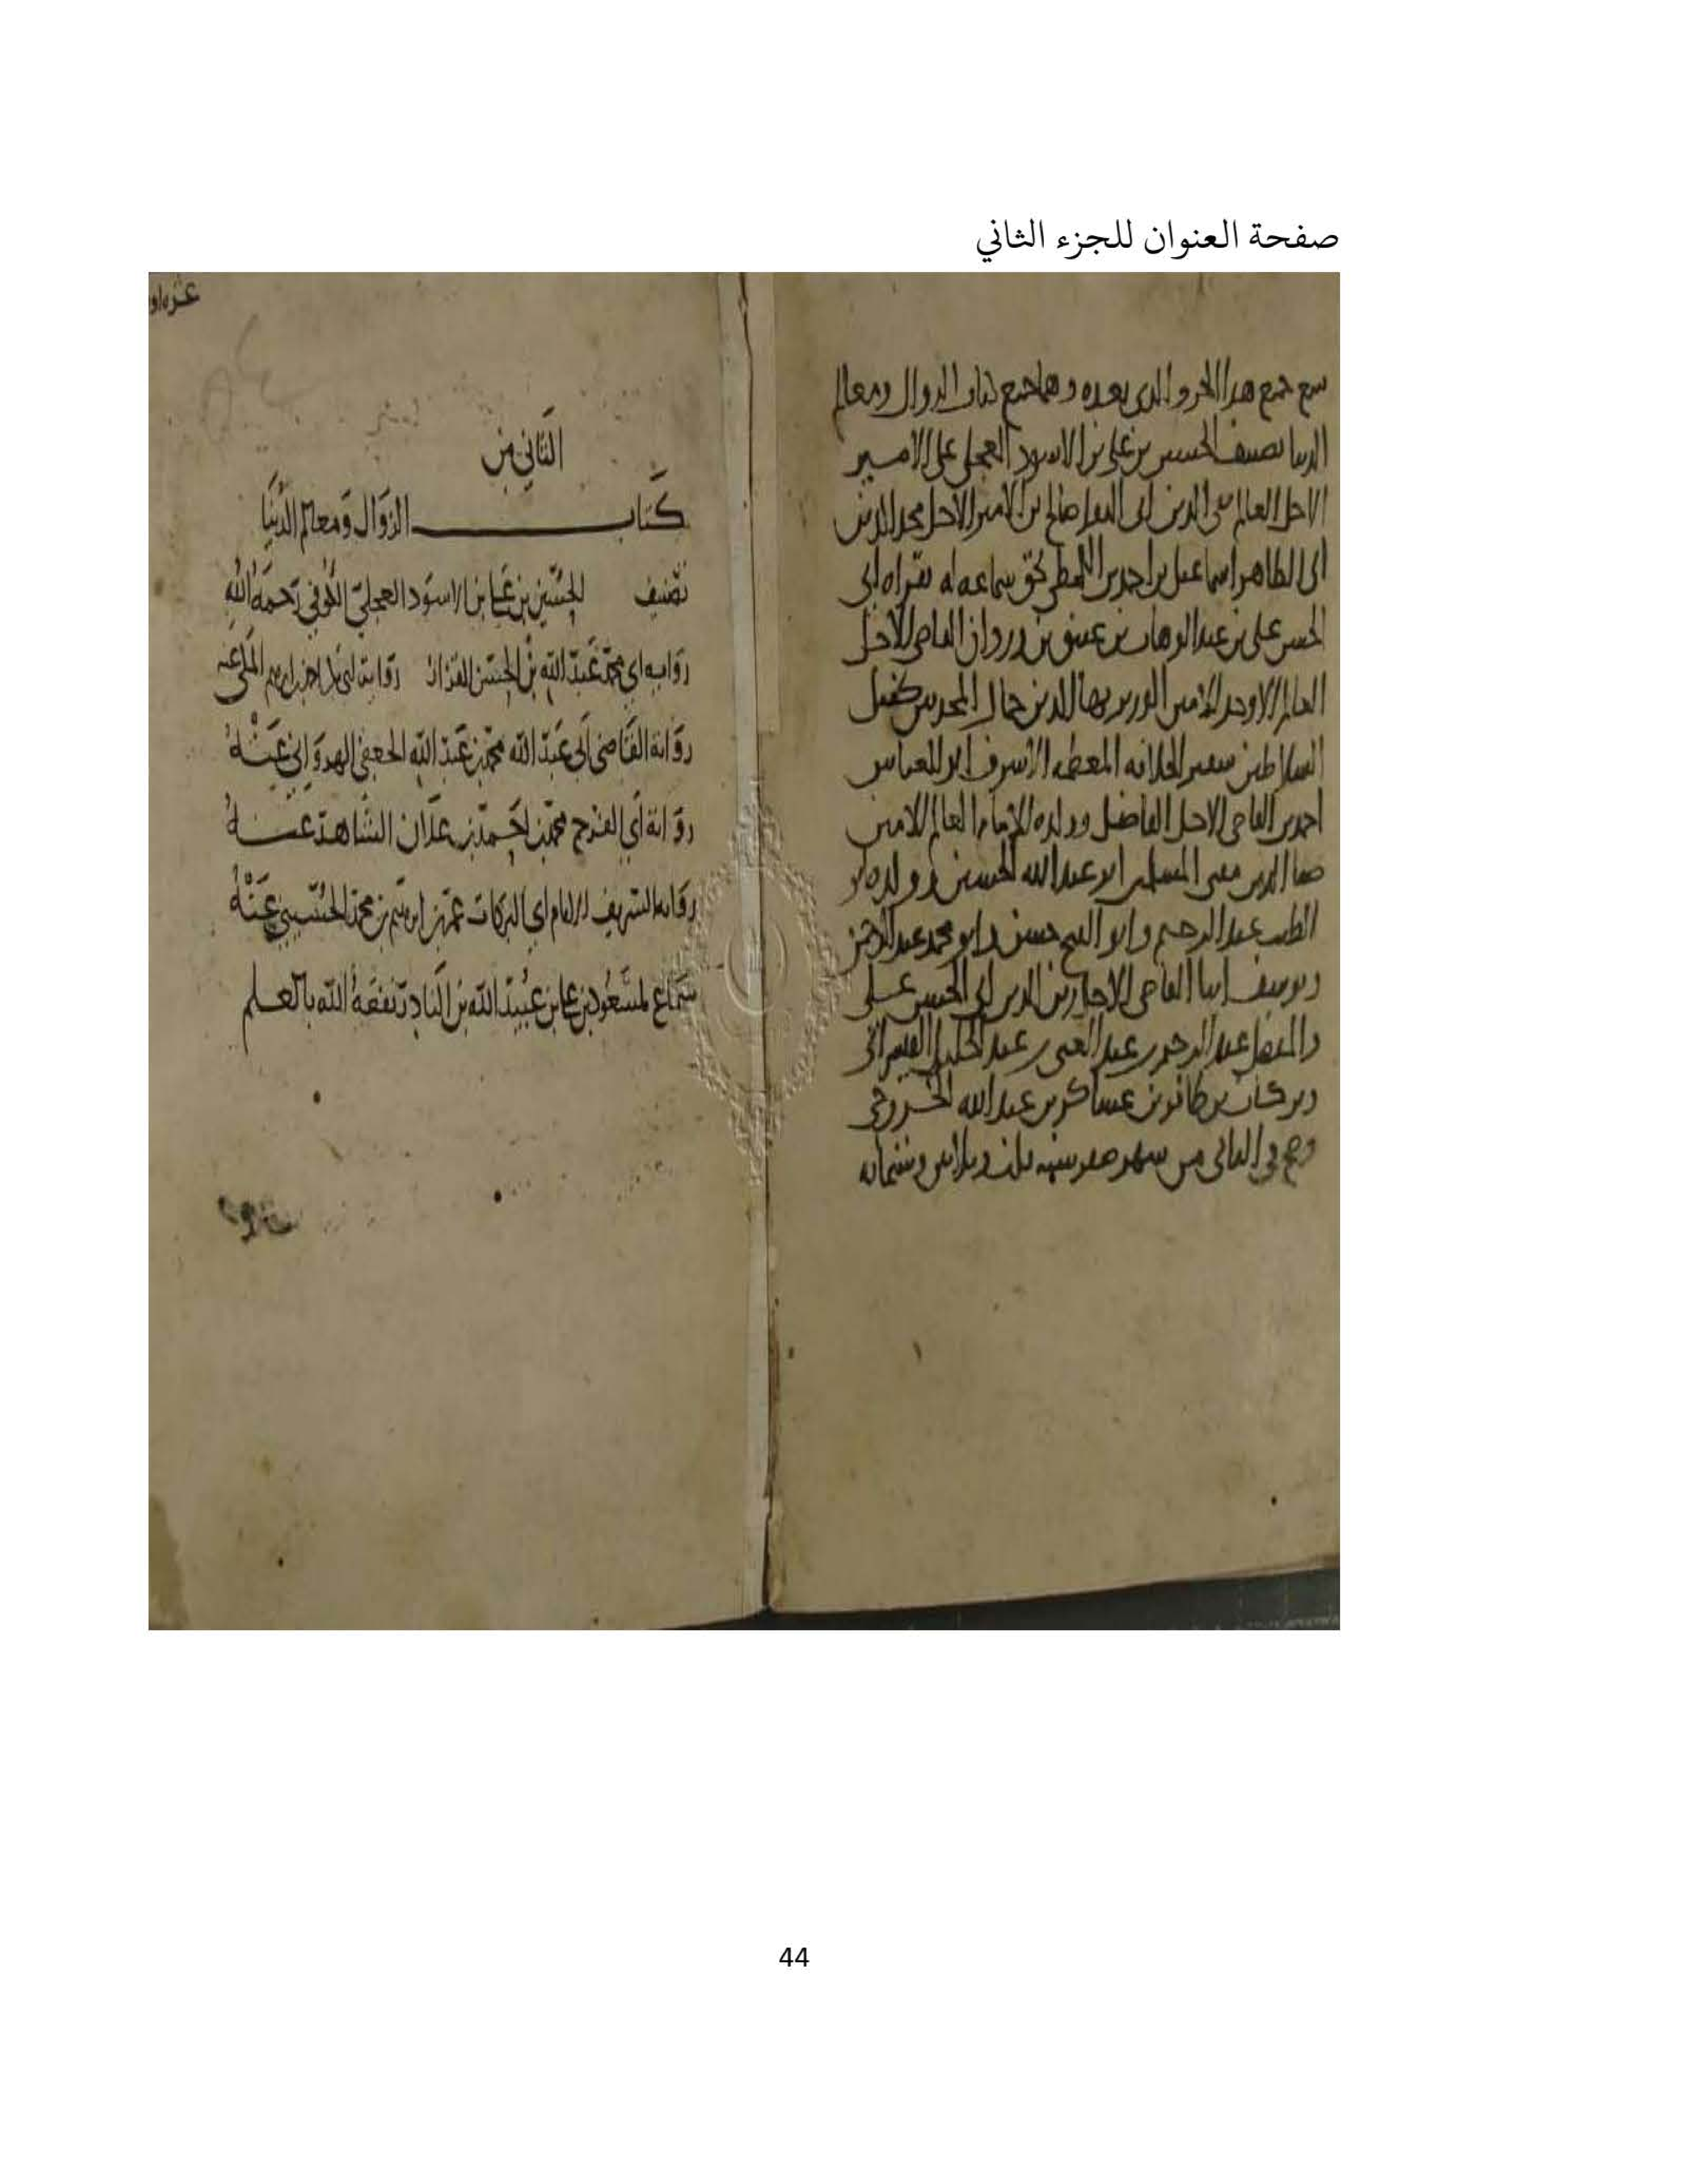 صفحة العنوان للجزء الثاني
سمع جميع هذا الجزو والذي بعده وهما جميع كتاب الزوال ومعالم
الدنيا تصنيف الحسين بن علي بن الاسود العجلي على الامير
الاجل العالم الدين ابي صالح بن الامير الاجل مجد الدين
ابي الطاهر اسماعيل بن احمد بن اللمطي بحق سماعه له بقراه ابي
الحسن علي بن عبد الوهاب بن عتيق بن وردان القاضي الاجل
العالم الاوحد الامين الوزير بها الدين جمال كفيل
السلاطين سفير الخلافه المعظمه الاشرف ابو العباس
احمد بن القاضي الاجل الفاضل وولده الامام العالم الامين
ضيا الدين المسلمين ابو عبد الله الحسين وولده ابو
الطيب عبد الرحيم وابو حسن وابو محمد عبد الرحمن
ويوسف ابنا القاضي الاجل زين الدين ابي الحسن علي
عبد الرحمن بن عبد الغني بن عبد الجليل
وبركات بن ظافر بن عساكر بن عبد الله
وصح في الثاني من شهر صفر سنة ثلث وثلاثين وستمائه
الثاني من
كتاب الزوال ومعالم الدنيا
تصنيف الحسين بن علي بن الاسود العجلي الكوفي رحمه الله
رواية ابي محمد عبد الله بن الحسن القزاز رواية ابي احمد بن ابرهيم عنه
رواية القاضي ابي عبد الله محمد بن عبد الله الجعفي الهرواني عنه
رواية ابي الفرج محمد بن احمد بن علان الشاهد عنه
رواية الشريف الامام ابي البركات عمر بن ابرهيم بن محمد الحسيني عنه
سماع لمسعود بن علي بن عبيد الله بن النادر نفعه الله بالعلم
44